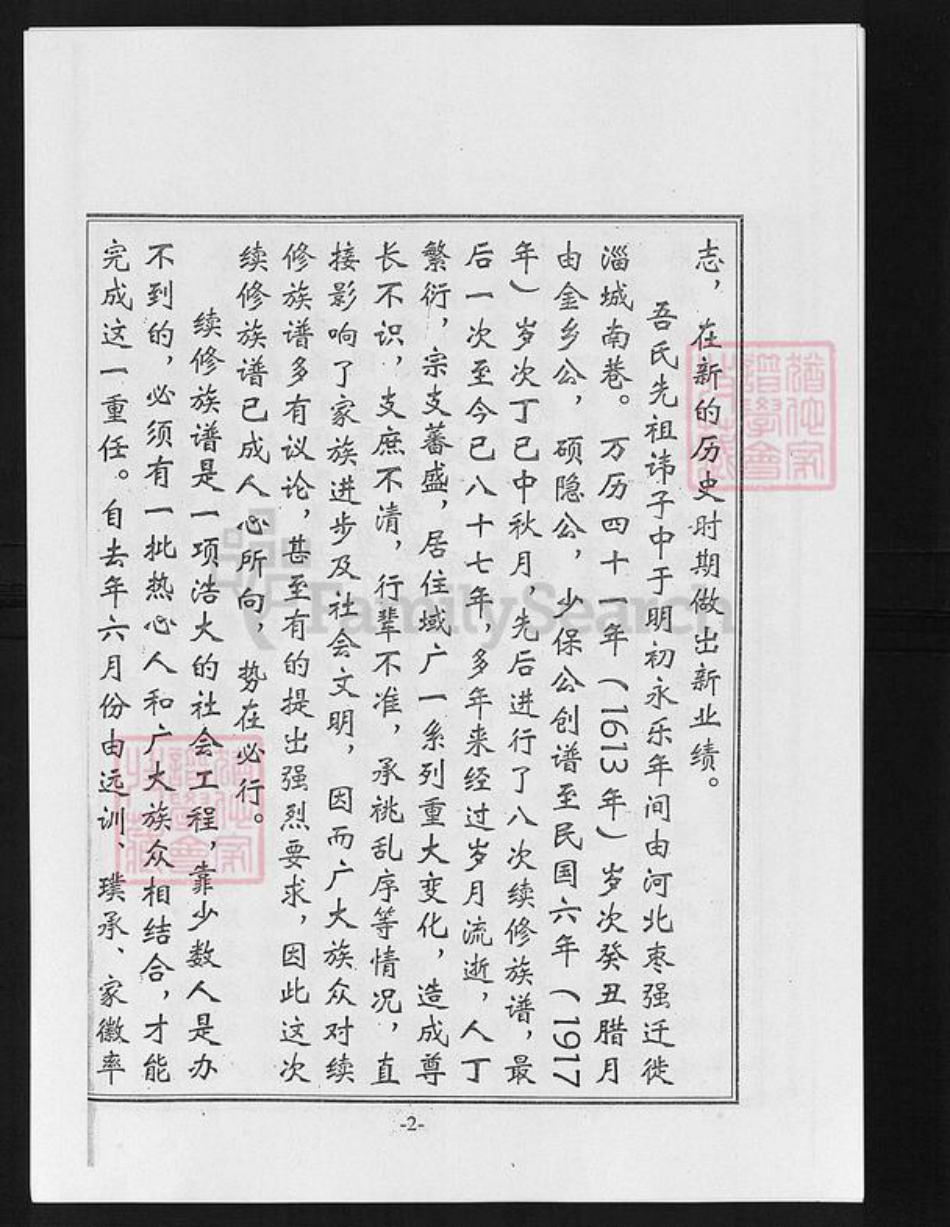 志，在新的历史时期做出新业绩。
吾氏先祖讳子中于明初永乐年间由河北枣强迁徙
淄城南巷。万历四十一年（1613年）岁次癸丑腊月
由金乡公，硕隐公，少保公创谱至民国六年（1917
年）岁次丁巳中秋月，先后进行了八次续修族谱，最
后一次至今已八十七年，多年来经过岁月流逝，人丁
繁衍，宗支蕃盛，居住域广一系列重大变化，造成尊
长不识，支庶不清，行辈不准，承祧乱序等情况，直
接影响了家族进步及社会文明，因而广大族众对续
修族谱多有议论，甚至有的提出强烈要求，因此这次
续修族谱已成人心所向，势在必行。
续修族谱是一项浩大的社会工程，靠少数人是办
不到的，必须有一批热心人和广大族众相结合，才能
完成这一重任。自去年六月份由远训、璞承、家徽率
-2-
FamilySearch